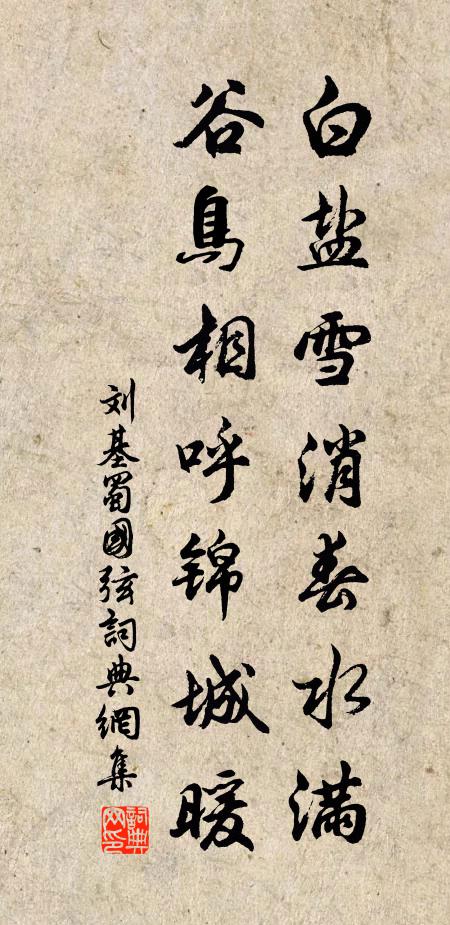 白盐雪消春水满
谷鳥相呼锦城暖
刘基蜀國弦詞典網集
詞典网印